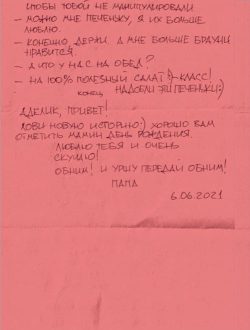 чтобы тобой не манипулировали
- можно мне печеньку, я их больше
люблю.
- конешно держи. а мне больше брауни
нравится.
- а что у нас на обед?
- на 100% полезный салат :)- класс!
конец надоели эти печеньки:)
привет!
лови новую историю:) хорошо вам
отметить мамин день рождения.
люблю тебя и очень
скучаю!
обним! и Уршу передай обним!
папа
6.06.2021